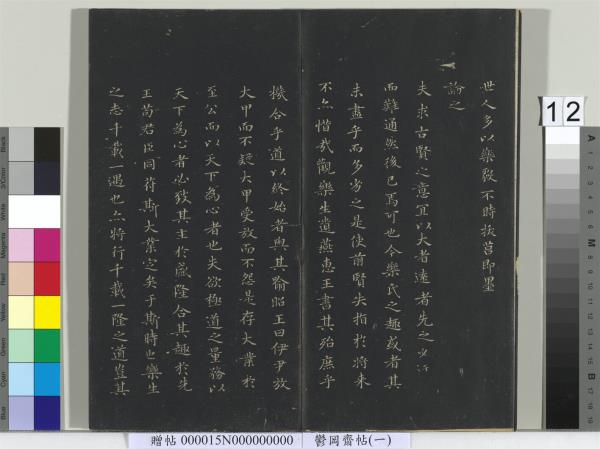 世人多以樂毅不時拔莒即墨
論之
夫求古賢之意宜以大者遠者先之必迂
而難通然後已焉可也今樂氏之趣或者其
未盡乎而多劣之是使前賢失指於將來
不亦惜哉觀樂生遺燕惠王書其殆庶乎
機合乎道以終始者與其喻昭王曰伊尹放
大甲而不疑大甲受放而不怨是存大業於
至公而以天下為心者也夫欲極道之量務以
天下為心者必致其主於盛隆合其趣於先
王苟君臣同符斯大業定矣于斯時也樂生
之志千載一遇也亦將行千載一隆之道豈其
12
贈帖 000015N000000000 鬱岡齋帖(一)
Black
3/Color
White
Magenta
Red
Yellow
Green
Cyan
Blue
A
1
2
3
4
5
6
M
8
9
10
11
12
13
14
15
B
17
18
19